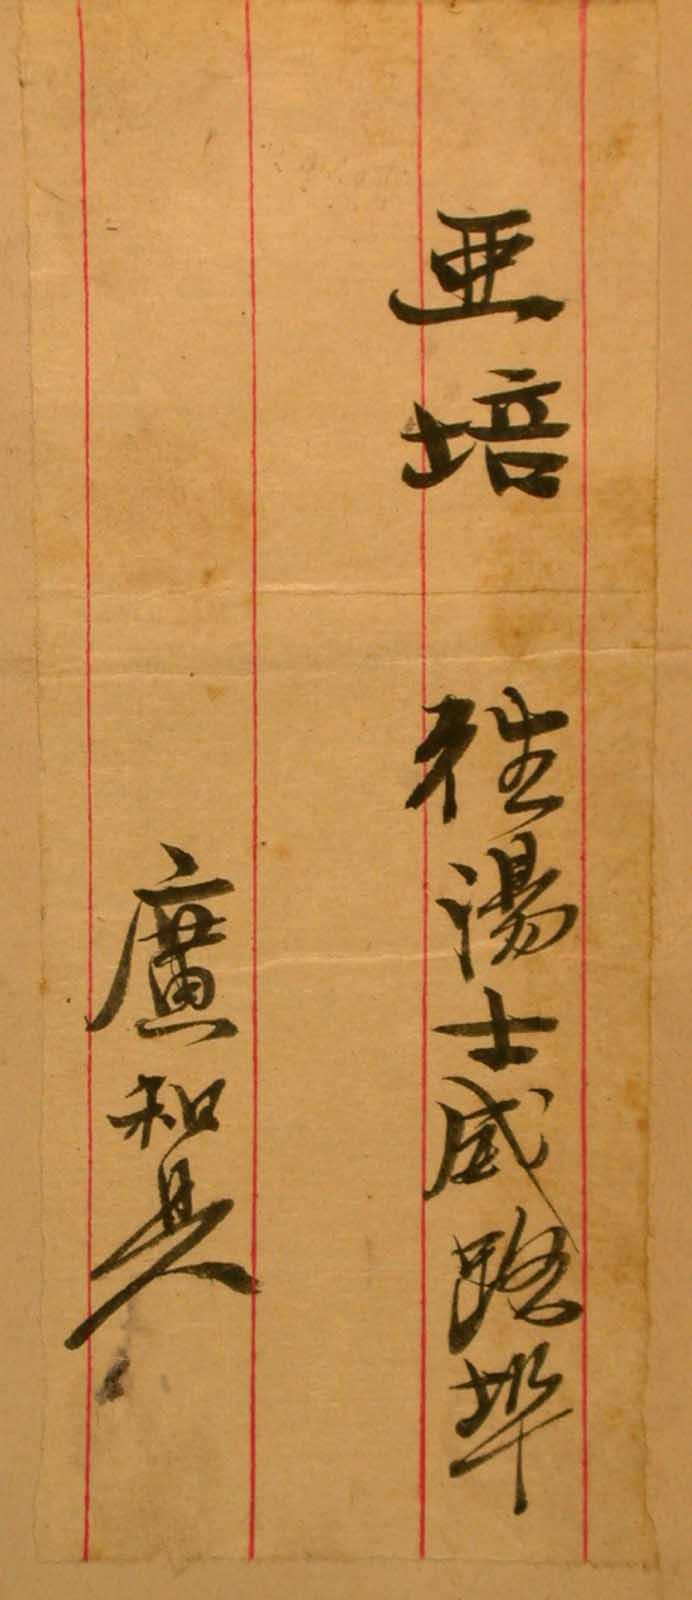 亜培 往湯士威路埠
廣知具